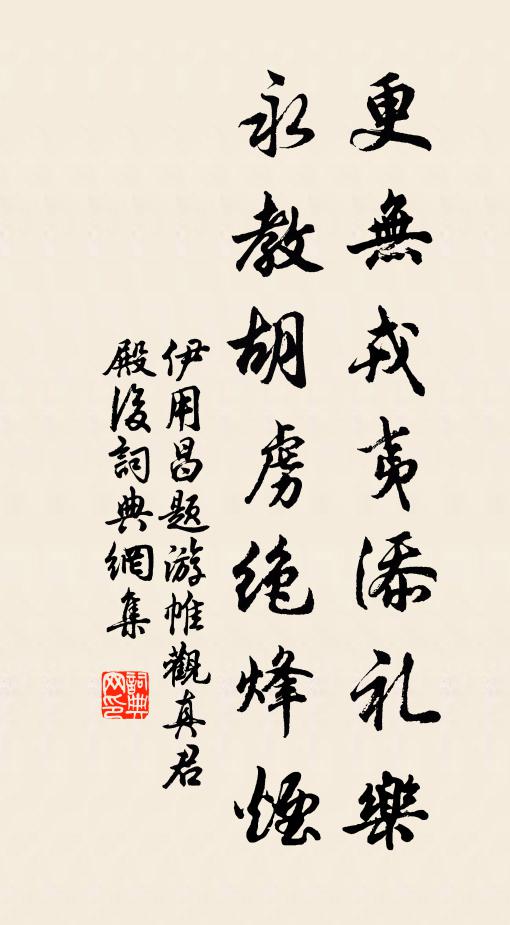 更無戎夷添礼樂
永教胡虜绝烽煙
伊用昌题游帷觀真君
殿後詞典網集
詞典网印